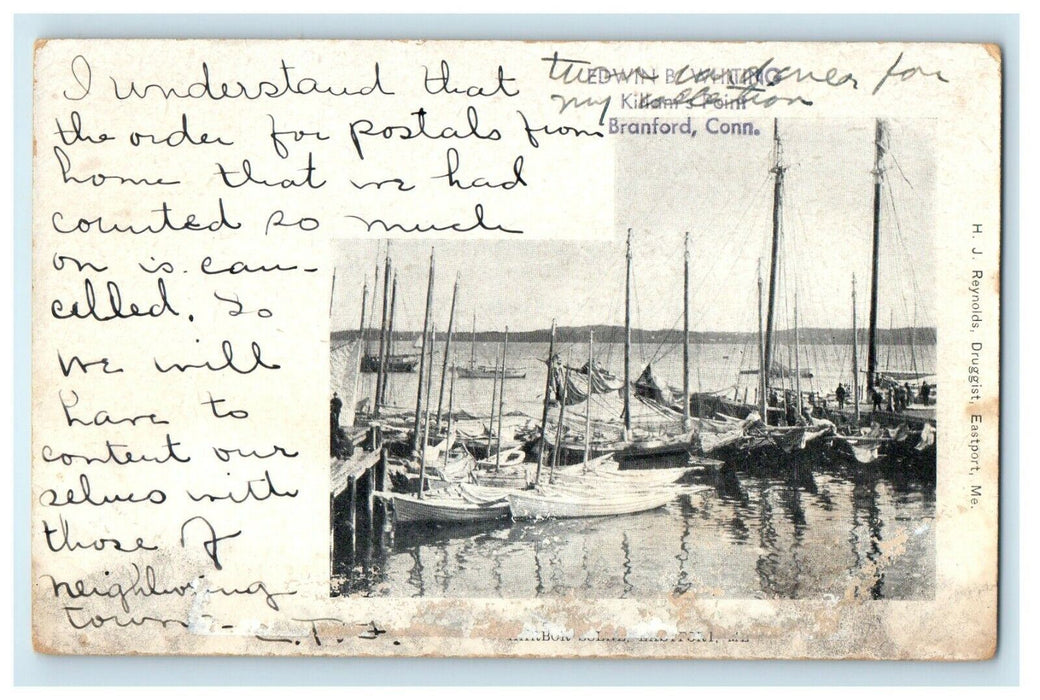 I understand that
the order for postals from
home that we had
counted so much
on is can-
celled. So
we will
have to
content our
selves with
those of
neighboring
towns - L. T. F.
for
my collection
EDWIN B. WHITING
Killam's Point
Branford, Conn.
H. J. Reynolds, Druggist, Eastport, Me.
HARBOR SCENE, EASTPORT, ME